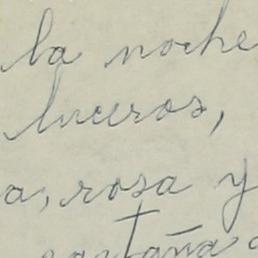 la noche
luceros,
a, rosa y